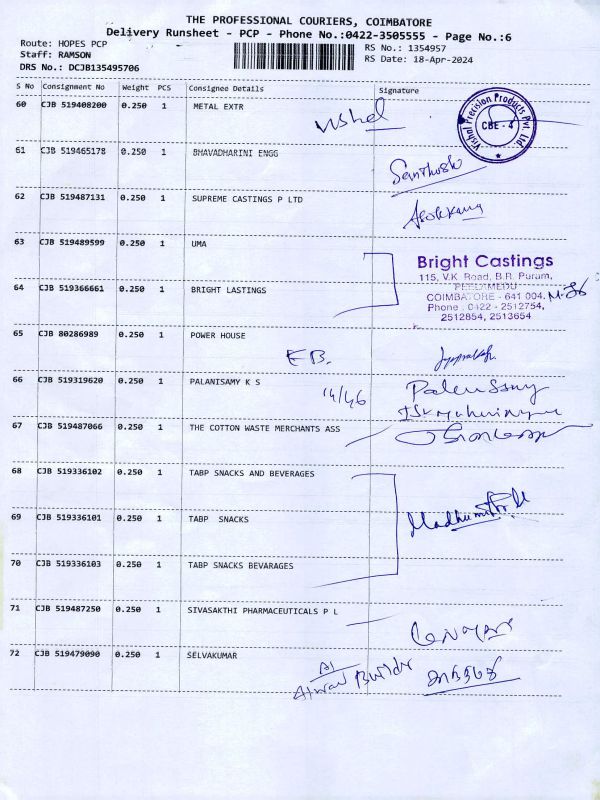 THE PROFESSIONAL COURIERS, COIMBATORE
Delivery Runsheet - PCP - Phone No.:0422-3505555 - Page No.:6
Route: HOPES PCP
RS No.: 1354957
Staff: RAMSON
RS Date: 18-Apr-2024
DRS No.: DCJB135495706
S No Consignment No Weight PCS Consignee Details Signature
60 CJB 519408200 0.250 1 METAL EXTR
Vishal
Vishal Precision Products Pvt. Ltd.
CBE - 4
61 CJB 519465178 0.250 1 BHAVADHARINI ENGG
Santhosh
62 CJB 519487131 0.250 1 SUPREME CASTINGS P LTD
63 CJB 519489599 0.250 1 UMA
Bright Castings
115, V.K. Road, B.R. Puram,
PEELAMEDU
COIMBATORE - 641 004.
Phone : 0422 - 2512754,
2512854, 2513654
64 CJB 519366661 0.250 1 BRIGHT LASTINGS
65 CJB 80286989 0.250 1 POWER HOUSE
EB.
66 CJB 519319620 0.250 1 PALANISAMY K S
14/46
67 CJB 519487066 0.250 1 THE COTTON WASTE MERCHANTS ASS
68 CJB 519336102 0.250 1 TABP SNACKS AND BEVERAGES
69 CJB 519336101 0.250 1 TABP SNACKS
70 CJB 519336103 0.250 1 TABP SNACKS BEVARAGES
71 CJB 519487250 0.250 1 SIVASAKTHI PHARMACEUTICALS P L
72 CJB 519479090 0.250 1 SELVAKUMAR